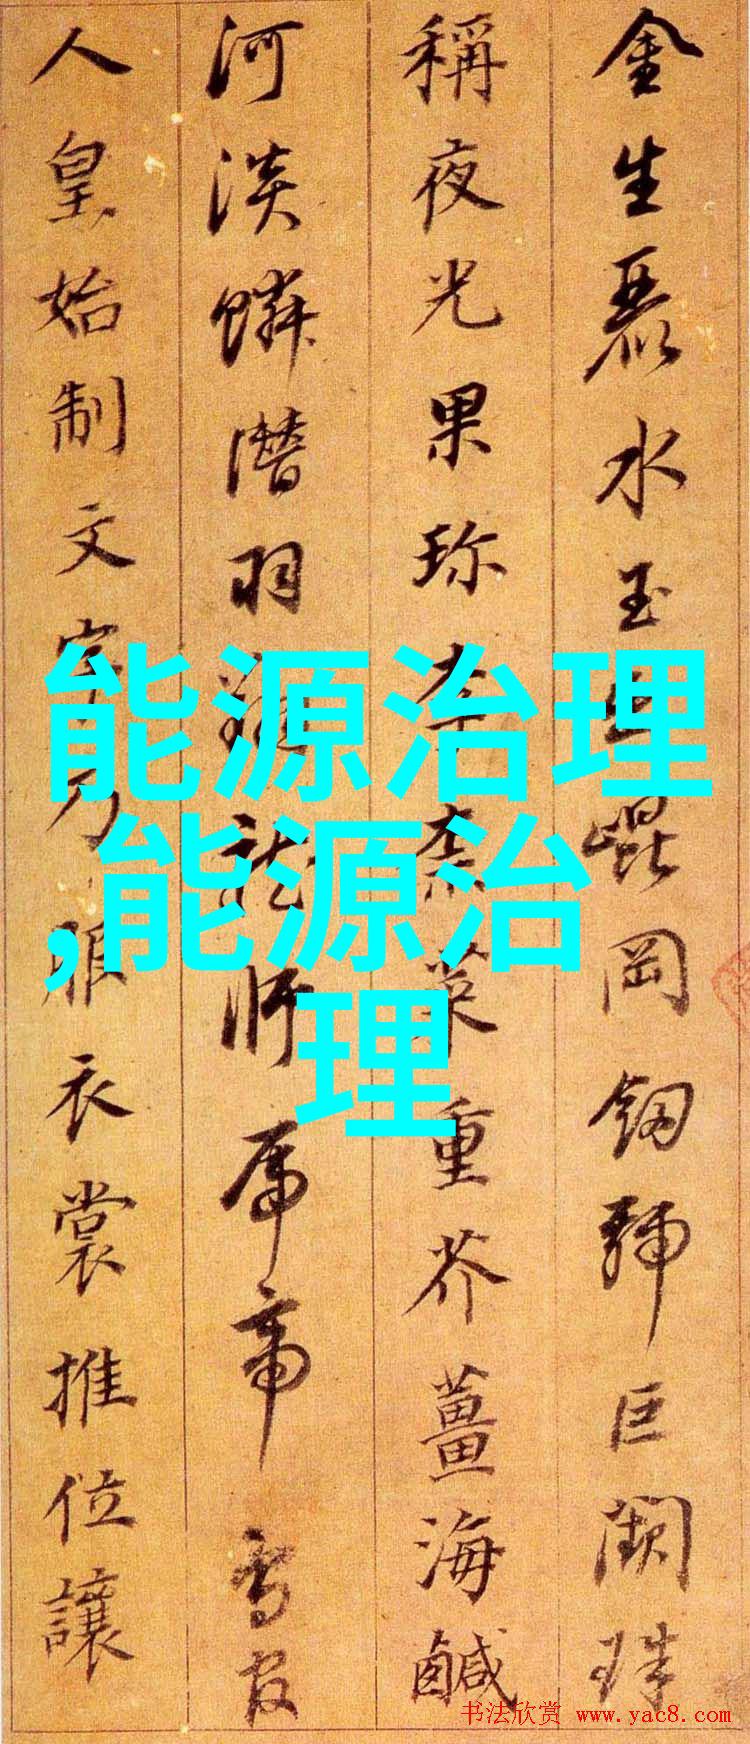 金生麗水玉出崐岡劒號巨闕珠
稱夜光果珎李柰菜重芥薑海鹹
河淡鱗潜羽翔龍師帝鳥官
人皇始制文字乃服衣裳推位讓
能源治理
,能源治
理
书法欣赏 www.yac8.com